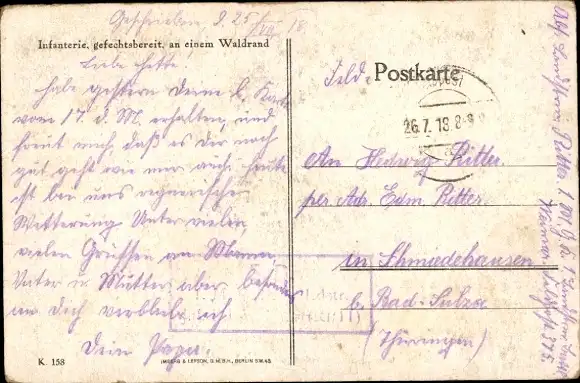 Geschrieben d. 25/VII 18
Infanterie, gefechtsbereit, an einem Waldrand
Liebe Hette.
habe gestern deine l. Karte
vom 17. d. M. erhalten, und
freut mich, daß es dir noch
gut geht wie mir auch. heute
ist bei uns regnerische
Witterung. Unter vielen
vielen Grüßen an Mama,
Vater u. Mutter aber besonders
an dich verbleib ich
Dein Papa.
K. 158
G.M.B.H., BERLIN S.W.
Feld Postkarte
26.7.18. 8-9
An Hedwig Ritter.
per Adr. Edm. Ritter.
in Schmiedehausen
b. Bad-Sulza
(Thüringen)
Abs. Ritter
Weimar